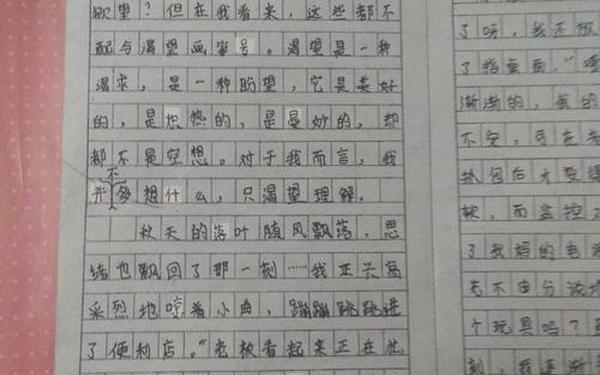 欲望？但在我看来，这些都不
配与渴望画等号。渴望是一种
渴求，是一种盼望，它是美好
的，是炽热的，是曼妙的，却
都不是空想。对于我而言，我
并不多想什么，只渴望理解。
秋天的落叶随风飘落，思
绪也飘回了那一刻……我正兴高
采烈地哼着小曲，蹦蹦跳跳进
了便利店。"老板看起来正在忙
了呀，我不
了指桌面。"
渐渐的，我的
不安，可在
热包后才变
软，而监控
了我妈的电
先不由分说
个玩具吗？
刻，我逐渐